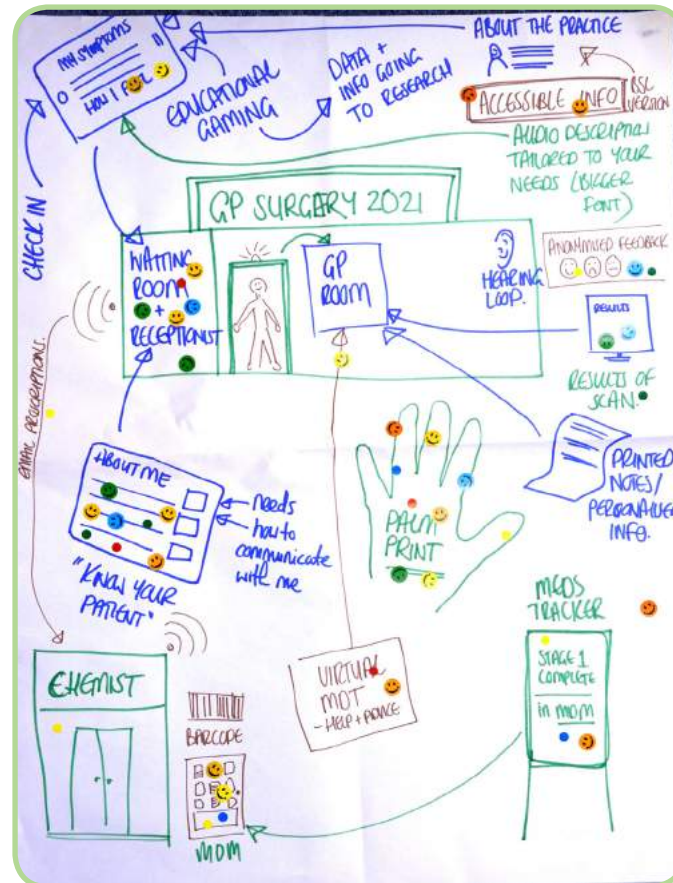 MY SYMPTOMS
HOW I FEEL
CHECK IN
EDUCATIONAL
GAMING
DATA +
INFO GOING
TO RESEARCH
ABOUT THE PRACTICE
ACCESSIBLE INFO
BSL
VERSION
AUDIO DESCRIPTION
TAILORED TO YOUR
NEEDS (BIGGER
FONT)
GP SURGERY 2021
WAITING
ROOM
+
RECEPTIONIST
GP
ROOM
HEARING
LOOP.
ANONYMISED FEEDBACK
RESULTS
RESULTS OF
SCAN.
PRINTED
NOTES/
PERSONALISED
INFO.
EMAIL PRESCRIPTIONS.
ABOUT ME
needs
how to
communicate
with me
"KNOW YOUR
PATIENT"
PALM
PRINT
MEDS
TRACKER
STAGE 1
COMPLETE
in MOM
VIRTUAL
MDT
- HELP + ADVICE
CHEMIST
BARCODE
MOM